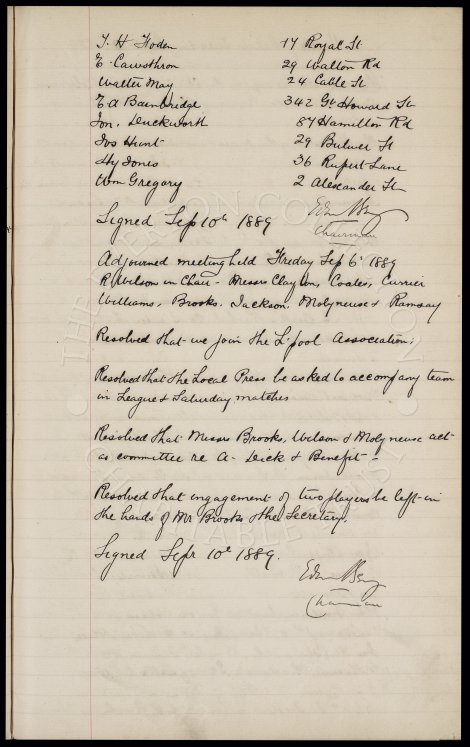 T. H. Foden 17 Royal St
E. Cawthron 29 Walton Rd
Walter May 24 Cable St
E A Bainbridge 342 Gt Howard St
Jon. Duckworth 87 Hamilton Rd
Jos Hunt 29 Bulwer St
Hy Jones 36 Rupert Lane
Wm Gregory 2 Alexander St
Signed Sep 10th 1889
Chairman
Adjourned meeting held Friday Sep 6th 1889
R Wilson in Chair - Messrs Clayton, Coates, Currier
Williams, Brooks, Jackson, Molyneux & Ramsay
Resolved that we join the L'pool Association.
Resolved that the Local Press be asked to accompany team
in League & Saturday matches
Resolved that Messrs Brooks, Wilson & Molyneux act
as committee re A. Dick & Benefit.
Resolved that engagement of two players be left in
the hands of Mr Brooks & the Secretary.
Signed Sepr 10th 1889.
Chairman
THE EVERTON COLLECTION
CHARITABLE TRUST